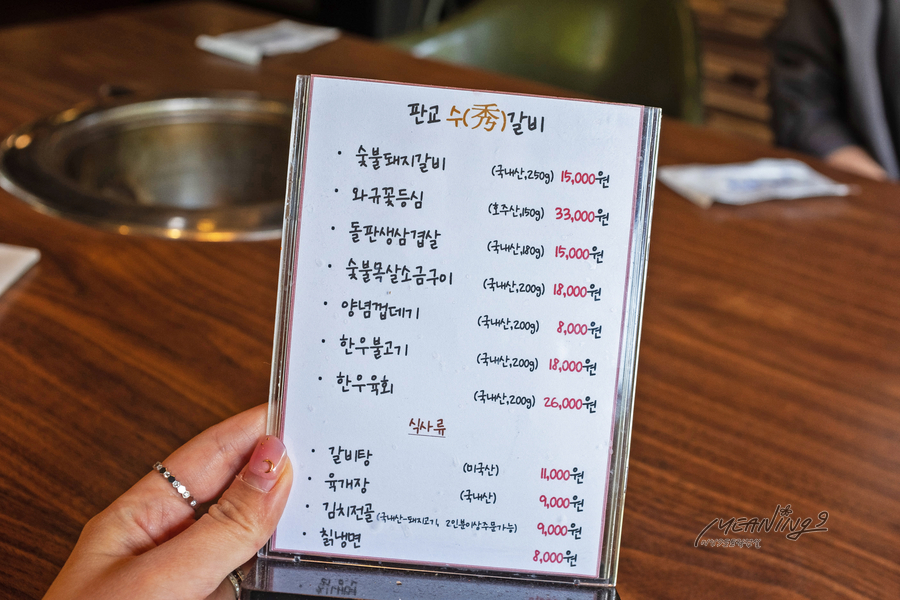 판교 수(秀)갈비
· 숯불돼지갈비 (국내산,250g) 15,000원
· 와규꽃등심 (호주산,150g) 33,000원
· 돌판생삼겹살 (국내산,180g) 15,000원
· 숯불목살소금구이 (국내산,200g) 18,000원
· 양념껍데기 (국내산,200g) 8,000원
· 한우불고기 (국내산,200g) 18,000원
· 한우육회 (국내산,200g) 26,000원
식사류
· 갈비탕 (미국산) 11,000원
· 육개장 (국내산) 9,000원
· 김치전골 (국내산-돼지고기, 2인분이상주문가능) 9,000원
· 칡냉면 8,000원
MEANING2